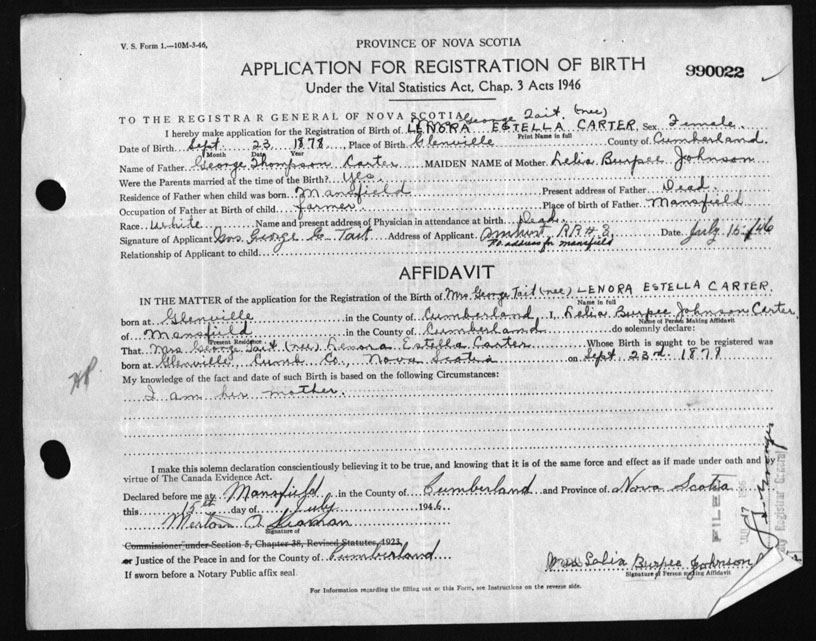 V. S. Form 1.—10M-3-46.
PROVINCE OF NOVA SCOTIA
APPLICATION FOR REGISTRATION OF BIRTH
990022
Under the Vital Statistics Act, Chap. 3 Acts 1946
TO THE REGISTRAR GENERAL OF NOVA SCOTIA
Mrs George Tait (nee)
I hereby make application for the Registration of Birth of LENORA ESTELLA CARTER, Sex Female
Print Name in full
Date of Birth Sept. 23 1878, Place of Birth Glenville County of Cumberland.
Month Date Year
Name of Father George Thompson Carter MAIDEN NAME of Mother Lelia Burpee Johnson
Were the Parents married at the time of the Birth? Yes.
Residence of Father when child was born Mansfield Present address of Father Dead.
Occupation of Father at Birth of child farmer Place of birth of Father Mansfield
Race White Name and present address of Physician in attendance at birth Dead.
Signature of Applicant Mrs. George G Tait Address of Applicant Amherst RR # 3, Date July 15-/46
address for mansfield
Relationship of Applicant to child
AFFIDAVIT
IN THE MATTER of the application for the Registration of the Birth of Mrs George Tait (nee) LENORA ESTELLA CARTER.
Name in full
born at Glenville in the County of Cumberland I, Lelia Burpee Johnson Carter
Name of Person Making Affidavit
of Mansfield in the County of Cumberland do solemnly declare:
Present Residence
That Mrs George Tait (nee) Lenora Estella Carter Whose Birth is sought to be registered was
born at Glenville Cumb Co., Nova Scotia on Sept. 23rd 1878
My knowledge of the fact and date of such Birth is based on the following Circumstances:
I am her mother.
I make this solemn declaration conscientiously believing it to be true, and knowing that it is of the same force and effect as if made under oath and by
virtue of The Canada Evidence Act.
Declared before me at Mansfield in the County of Cumberland and Province of Nova Scotia
this 15th day of July 1946
Signature of
Commissioner under Section 5, Chapter 38, Revised Statutes, 1923,
or Justice of the Peace in and for the County of Cumberland
If sworn before a Notary Public affix seal
Mrs Burpee Johnson
Signature of Person making Affidavit
FILED
For Information regarding the filling out of this Form, see Instructions on the reverse side.